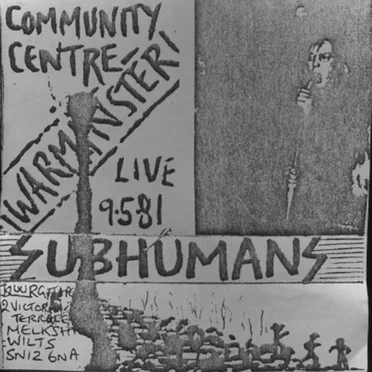 COMMUNITY
CENTRE
WARMINSTER
LIVE
9·5·81
SUBHUMANS
2 VICTORIA
TERRACE
MELKSH
WILTS
SN12 6NA